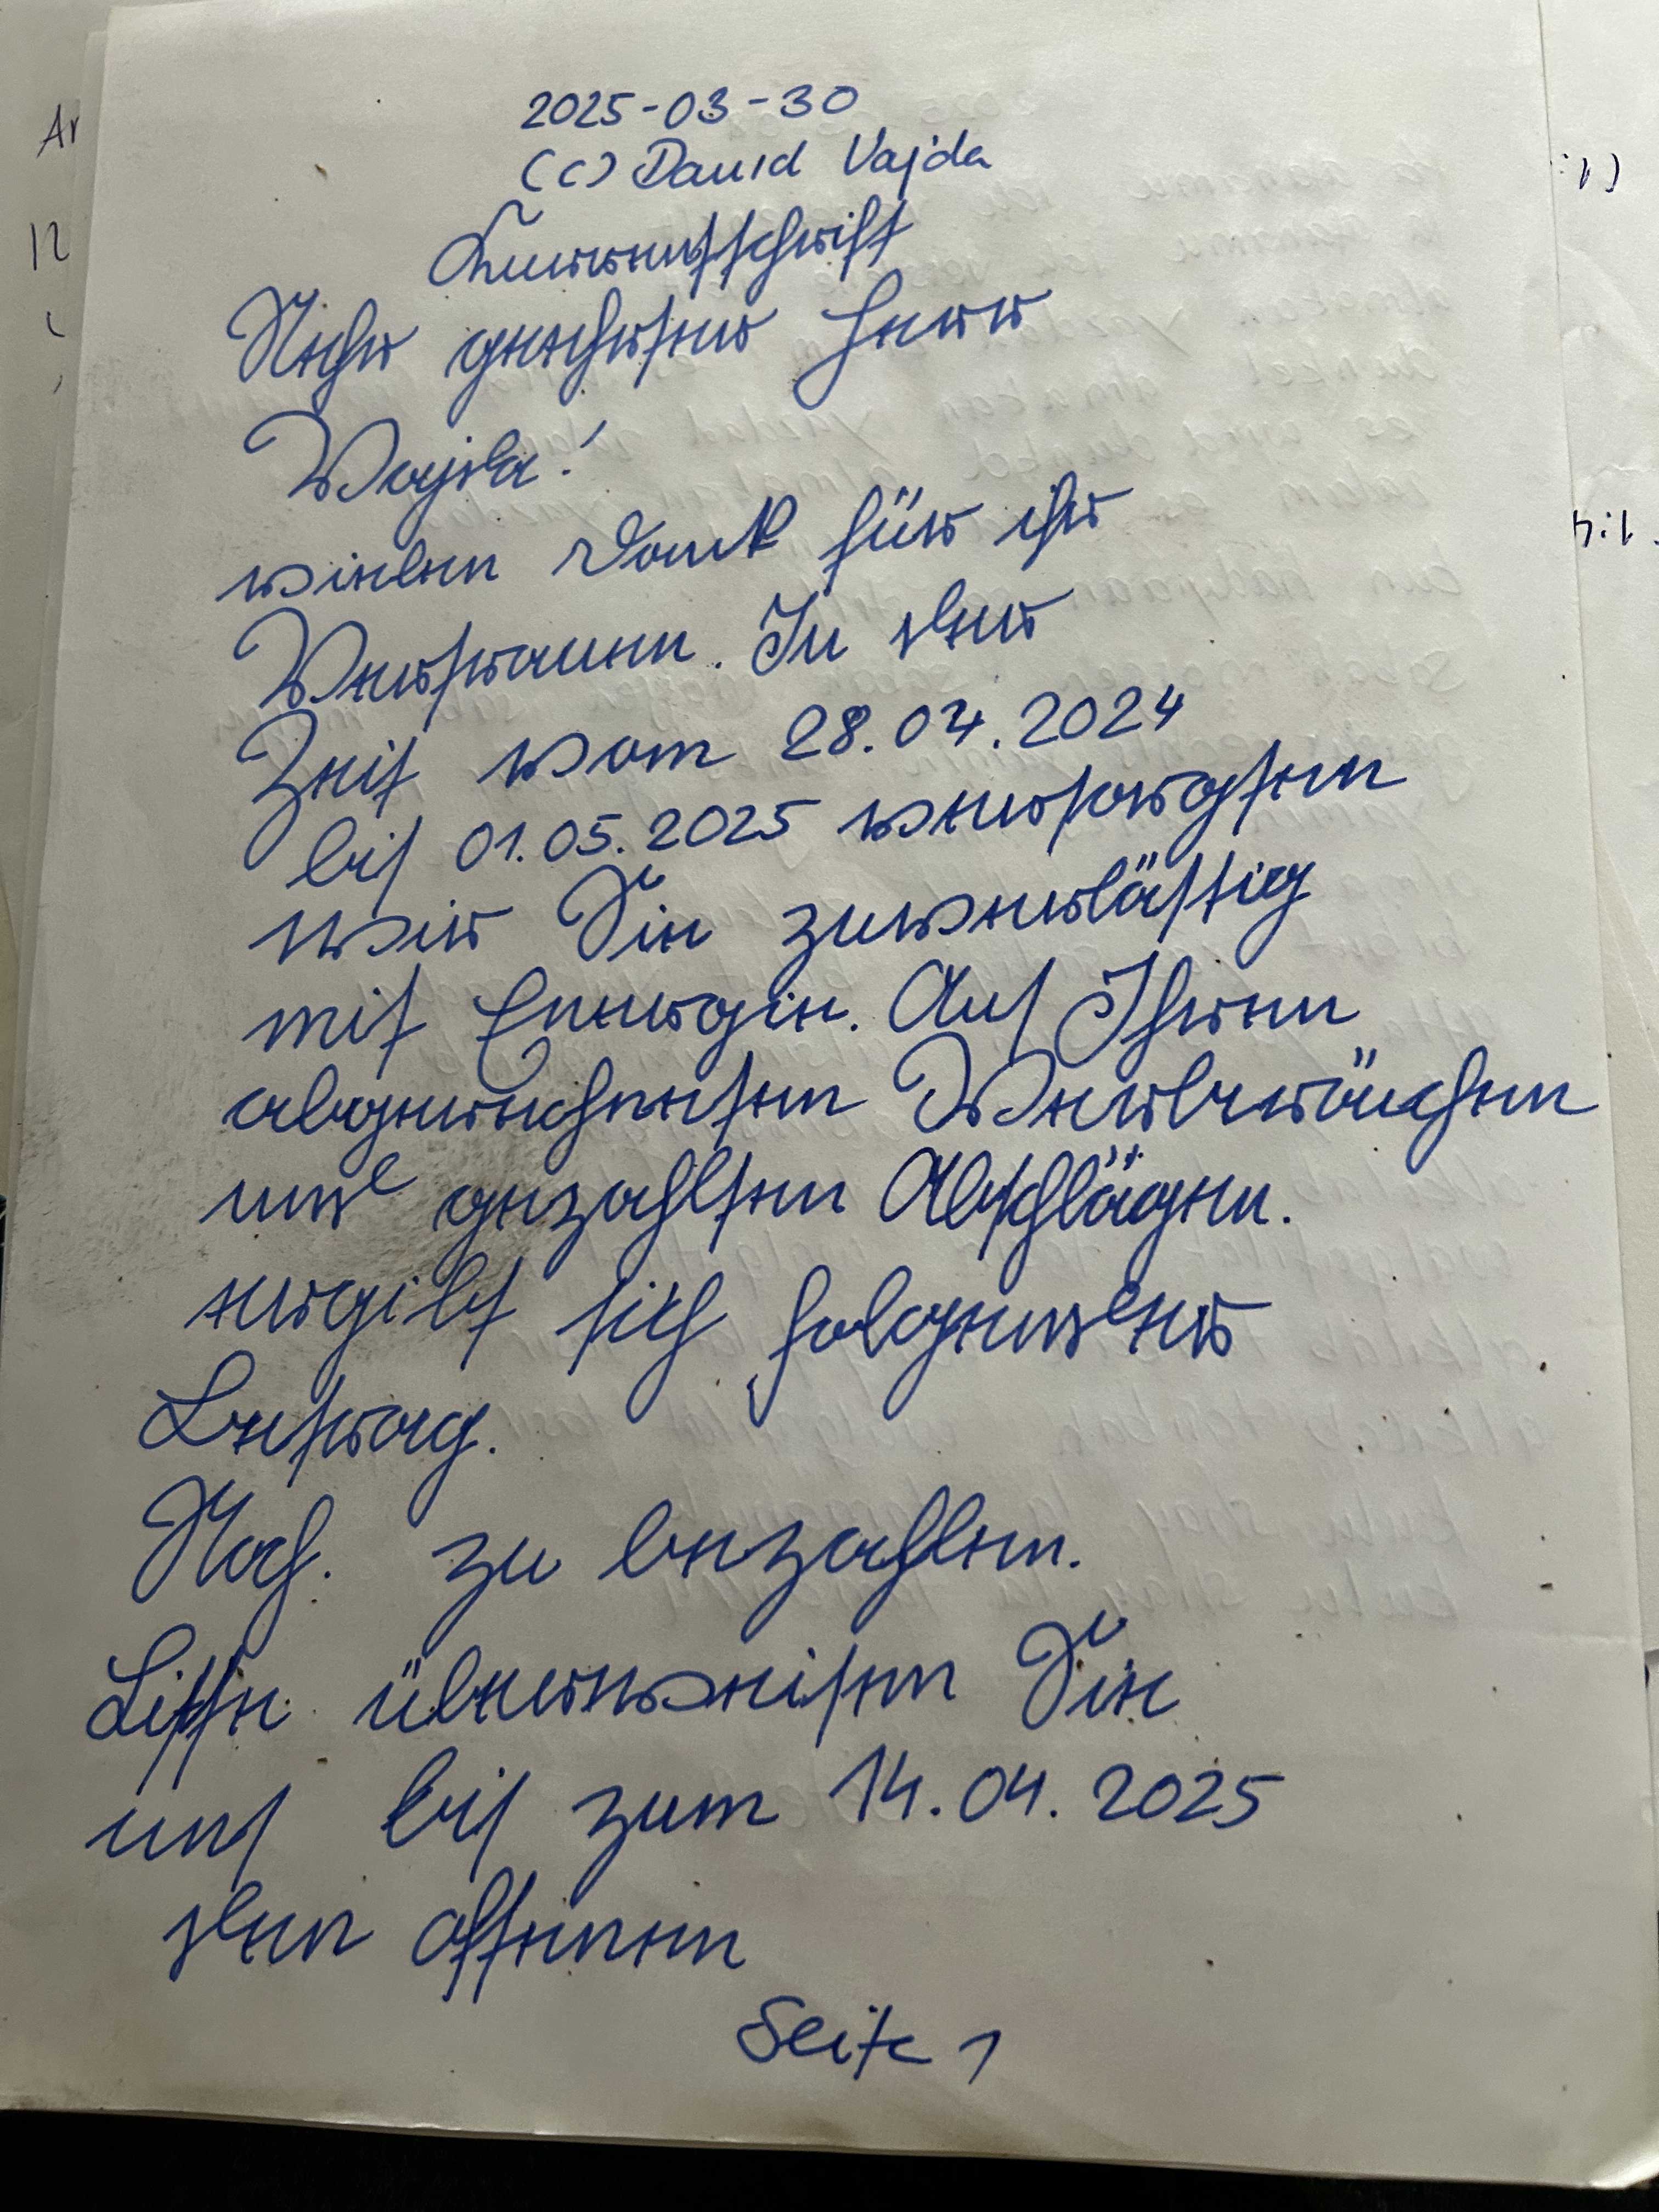 2025-03-30
(c) David Vajda
Kurrentschrift
Sehr geehrter Herr
Vajda!
vielen Dank für ihr
Vertrauen. In der
Zeit vom 28.04.2024
bis 01.05.2025 versorgten
wir Sie zuverlässig
mit Energie. Aus Ihren
abgerechneten Verbräuchen
und gezahlten Abschlägen.
ergibt sich folgender
Betrag.
Noch. zu bezahlen.
Bitte überweisen Sie
uns bis zum 14.04.2025
den offenen
Seite 1
Ar
12